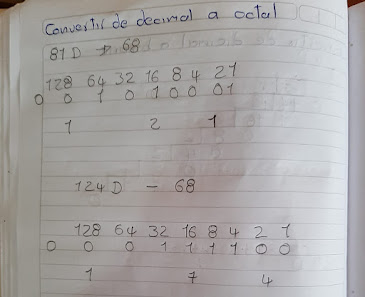 Convertir de decimal a octal
81 D → 68
128 64 32 16 8 4 2 1
0 0 1 0 1 0 0 0 1
1 2 1
124 D - 68
128 64 32 16 8 4 2 1
0 0 0 1 1 1 1 0 0
1 7 4